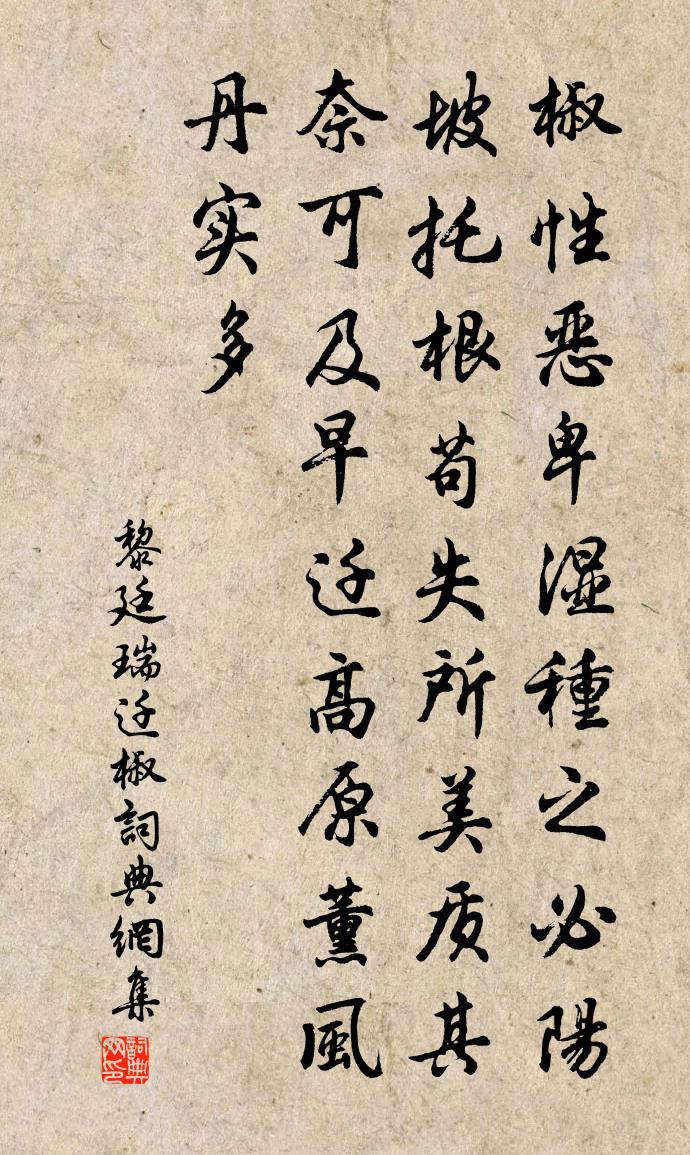 椒性恶卑湿種之必陽
坡托根苟失所美质其
奈可及早迁高原薰風
丹实多
黎廷瑞迁椒詞典網集
詞典网印